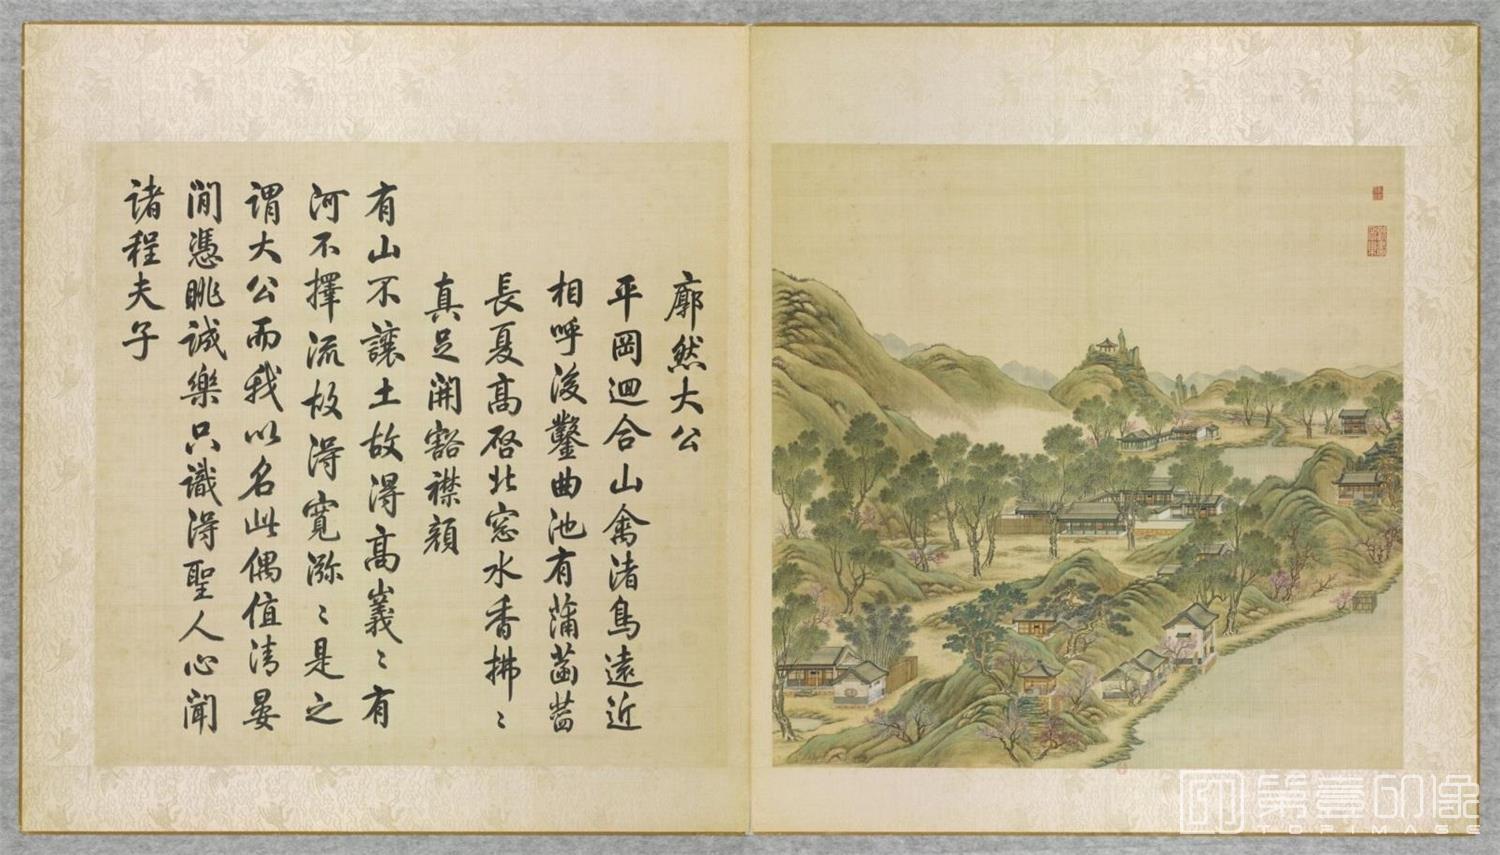 廓然大公
平岡迴合山禽渚鳥遠近
相呼後鑿曲池有蒲菡萏
長夏高啓北窓水香拂〻
真足開豁襟顔
有山不讓土故得高峩〻有
河不擇流故得寛瀰〻是之
謂大公而我以名此偶值清晏
閒憑眺誠樂只識得聖人心聞
諸程夫子
第壹印像
TOPIMAGE